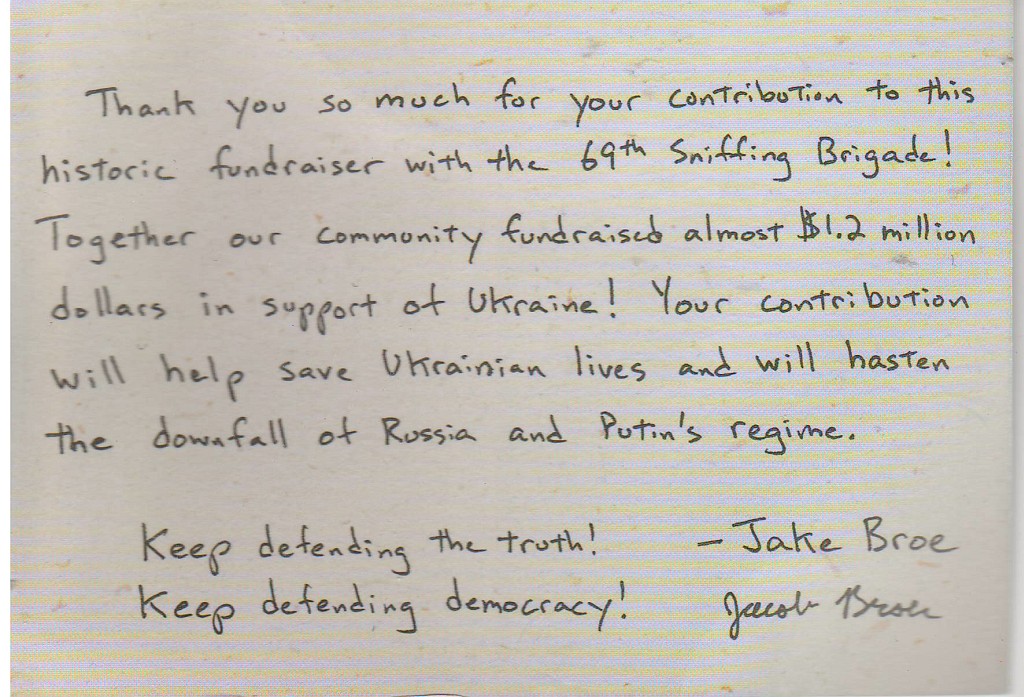 Thank you so much for your contribution to this
historic fundraiser with the 69th Sniffing Brigade!
Together our community fundraised almost $1.2 million
dollars in support of Ukraine! Your contribution
will help save Ukrainian lives and will hasten
the downfall of Russia and Putin's regime.
Keep defending the truth! - Jake Broe
Keep defending democracy! Jacob Broe